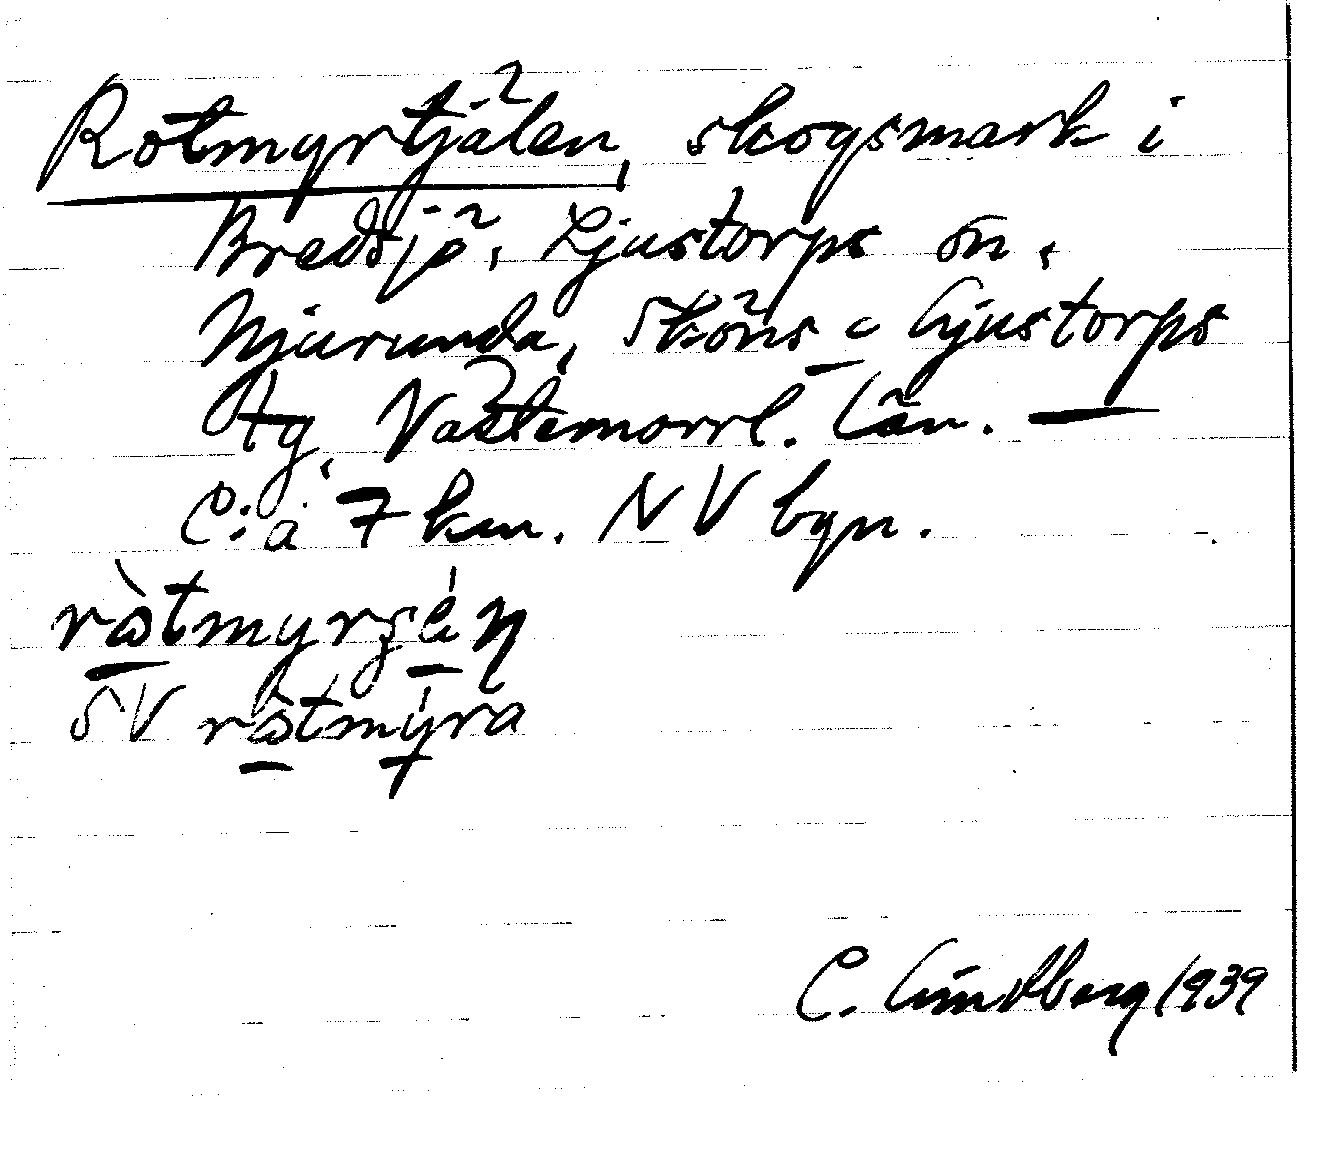 Rotmyrtjälen, skogsmark i
Bredsjö, Ljustorps sn,
Njurunda, Sköns o Ljustorps
tg, Västernorrl. län. —
C:a 7 km. NV byn.
ròtmyrʂéɳ
SV ròtmýra
C. Lindberg 1939